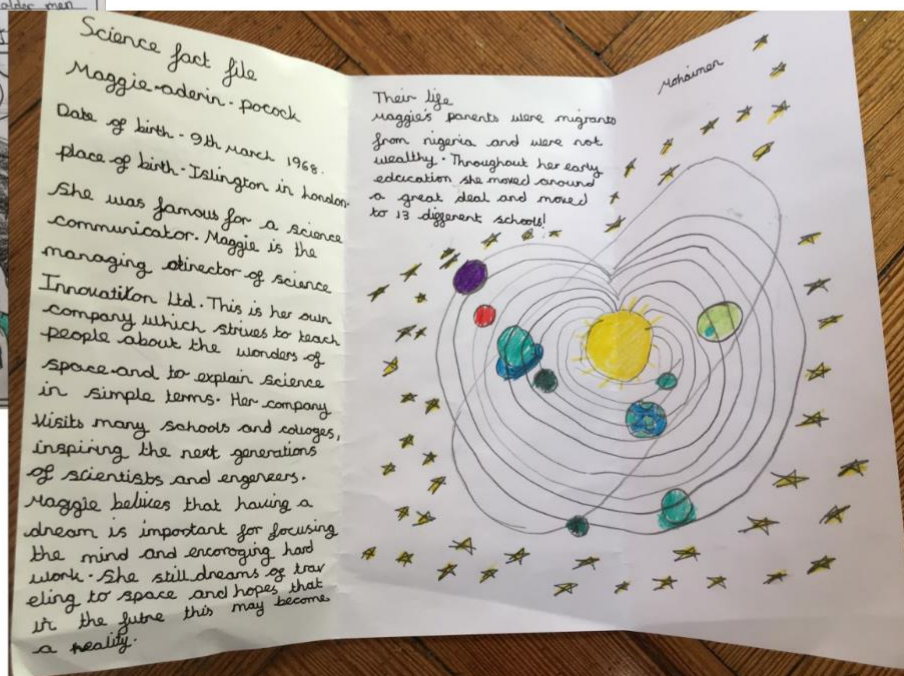 older men
Science fact file
Maggie-aderin-pocock
Date of birth - 9th march 1968.
place of birth - Islington in london.
She was famous for a science
communicator. Maggie is the
managing director of science
Innovatiton Ltd. This is her own
company which strives to teach
people about the wonders of
space and to explain science
in simple terms. Her company
visits many schools and colloges,
inspiring the next generations
of scientisbs and engeneers.
Maggie belives that having a
dream is important for focusing
the mind and encoroging hard
work. She still dreams of trav
eling to space and hopes that
in the futre this may become
a reality.
Their life
Maggies parents were migrants
from nigeria and were not
wealthy. Throughout her early
edcication she moved around
a great deal and moved
to 13 different schools!
Mohaimen